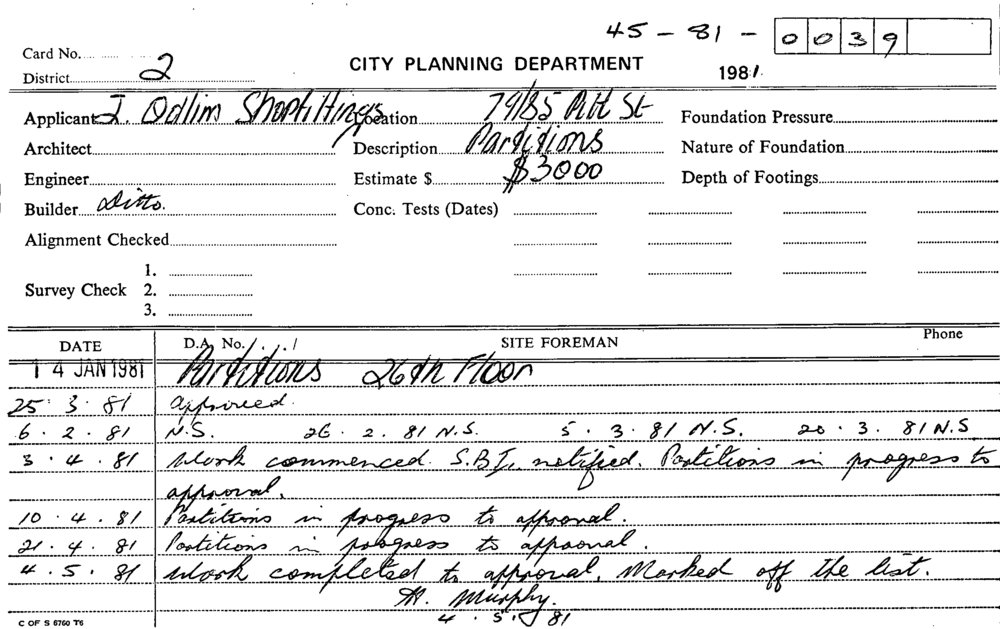 45 - 81 - 0039
Card No.
District 2
CITY PLANNING DEPARTMENT
1981.
Applicant J. Odlim Shopfittings Location 79/85 Pitt St Foundation Pressure
Architect Description Partitions Nature of Foundation
Engineer Estimate $ $3000 Depth of Footings
Builder Ditto. Conc. Tests (Dates)
Alignment Checked
1.
Survey Check 2.
3.
DATE D.A. No. / . / . / SITE FOREMAN Phone
14 JAN 1981 Partitions 26th Floor
25 . 3 . 81 approved.
6 . 2 . 81 N.S. 26 . 2 . 81 N.S. 5 . 3 . 81 N.S. 20 . 3 . 81 N.S
3 . 4 . 81 Work commenced. S.B.I. notified. Partitions in progress to
approval.
10 . 4 . 81 Partitions in progress to approval.
21 . 4 . 81 Partitions in progress to approval.
4 . 5 . 81 Work completed to approval. Marked off the list.
M. Murphy.
4 . 5 . 81
C OF S 6760 T6